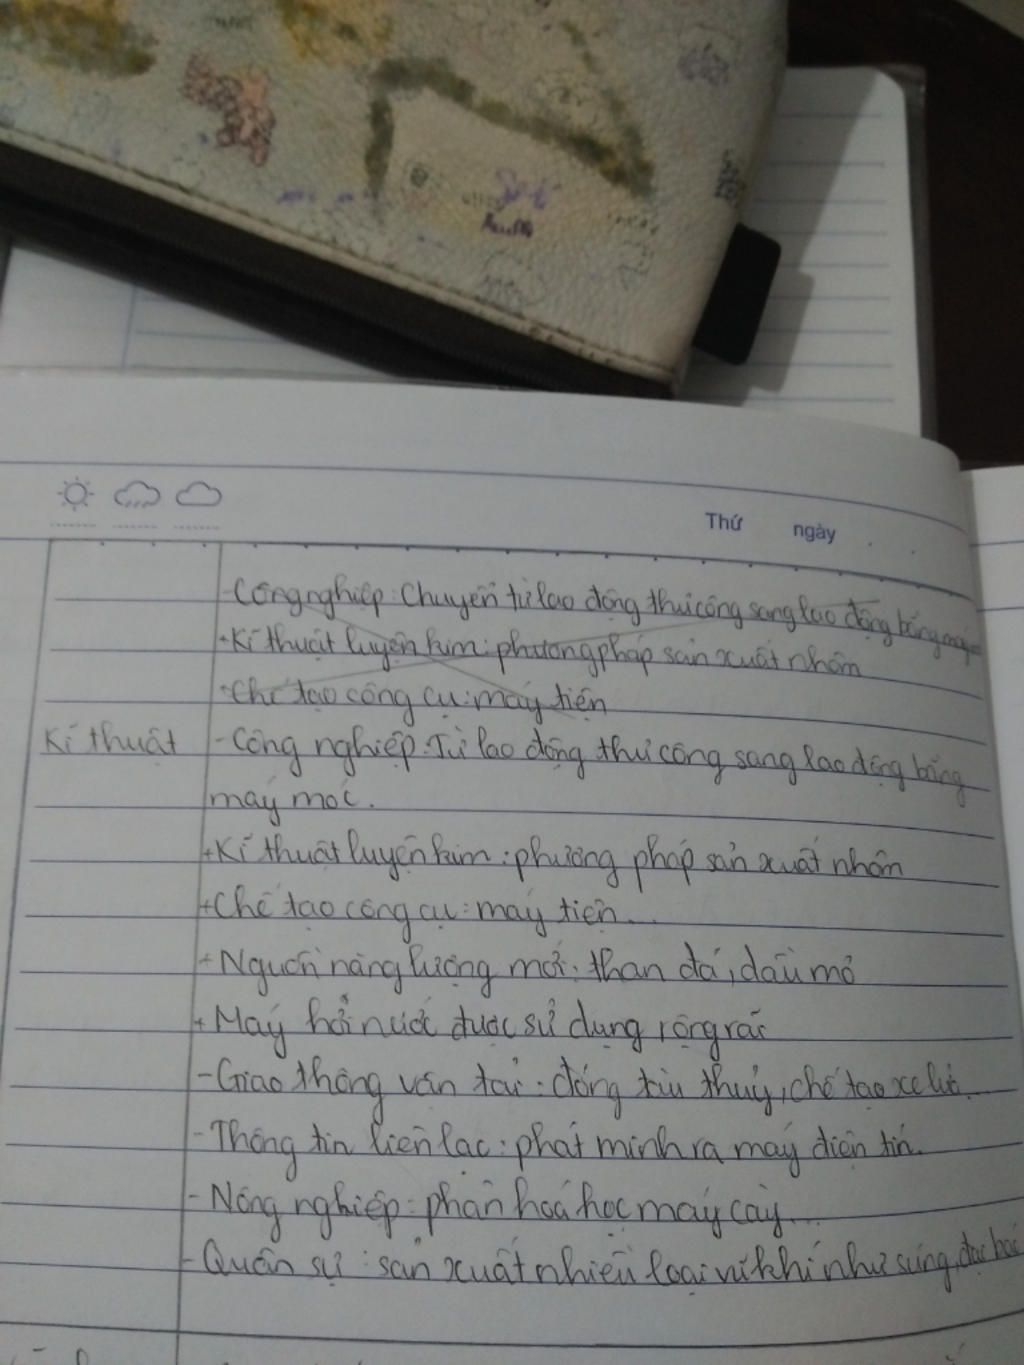 Thứ ngày
-Công nghiệp: Chuyển từ lao động thủ công sang lao động bằng máy
+Kĩ thuật luyện kim: phương pháp sản xuất nhôm
+Chế tạo công cụ: máy tiện
Kĩ thuật -Công nghiệp: Từ lao động thủ công sang lao động bằng
máy móc.
+Kĩ thuật luyện kim: phương pháp sản xuất nhôm
+Chế tạo công cụ: máy tiện...
+Nguồn năng lượng mới: than đá, dầu mỏ
+Máy hơi nước được sử dụng rộng rãi
-Giao thông vấn tải: đóng tàu thuỷ, chế tạo xe lửa.
-Thông tin liên lạc: phát minh ra máy điện tín.
-Nông nghiệp: phân hoá học máy cày...
-Quân sự: sản xuất nhiều loại vũ khí như súng, đại bác